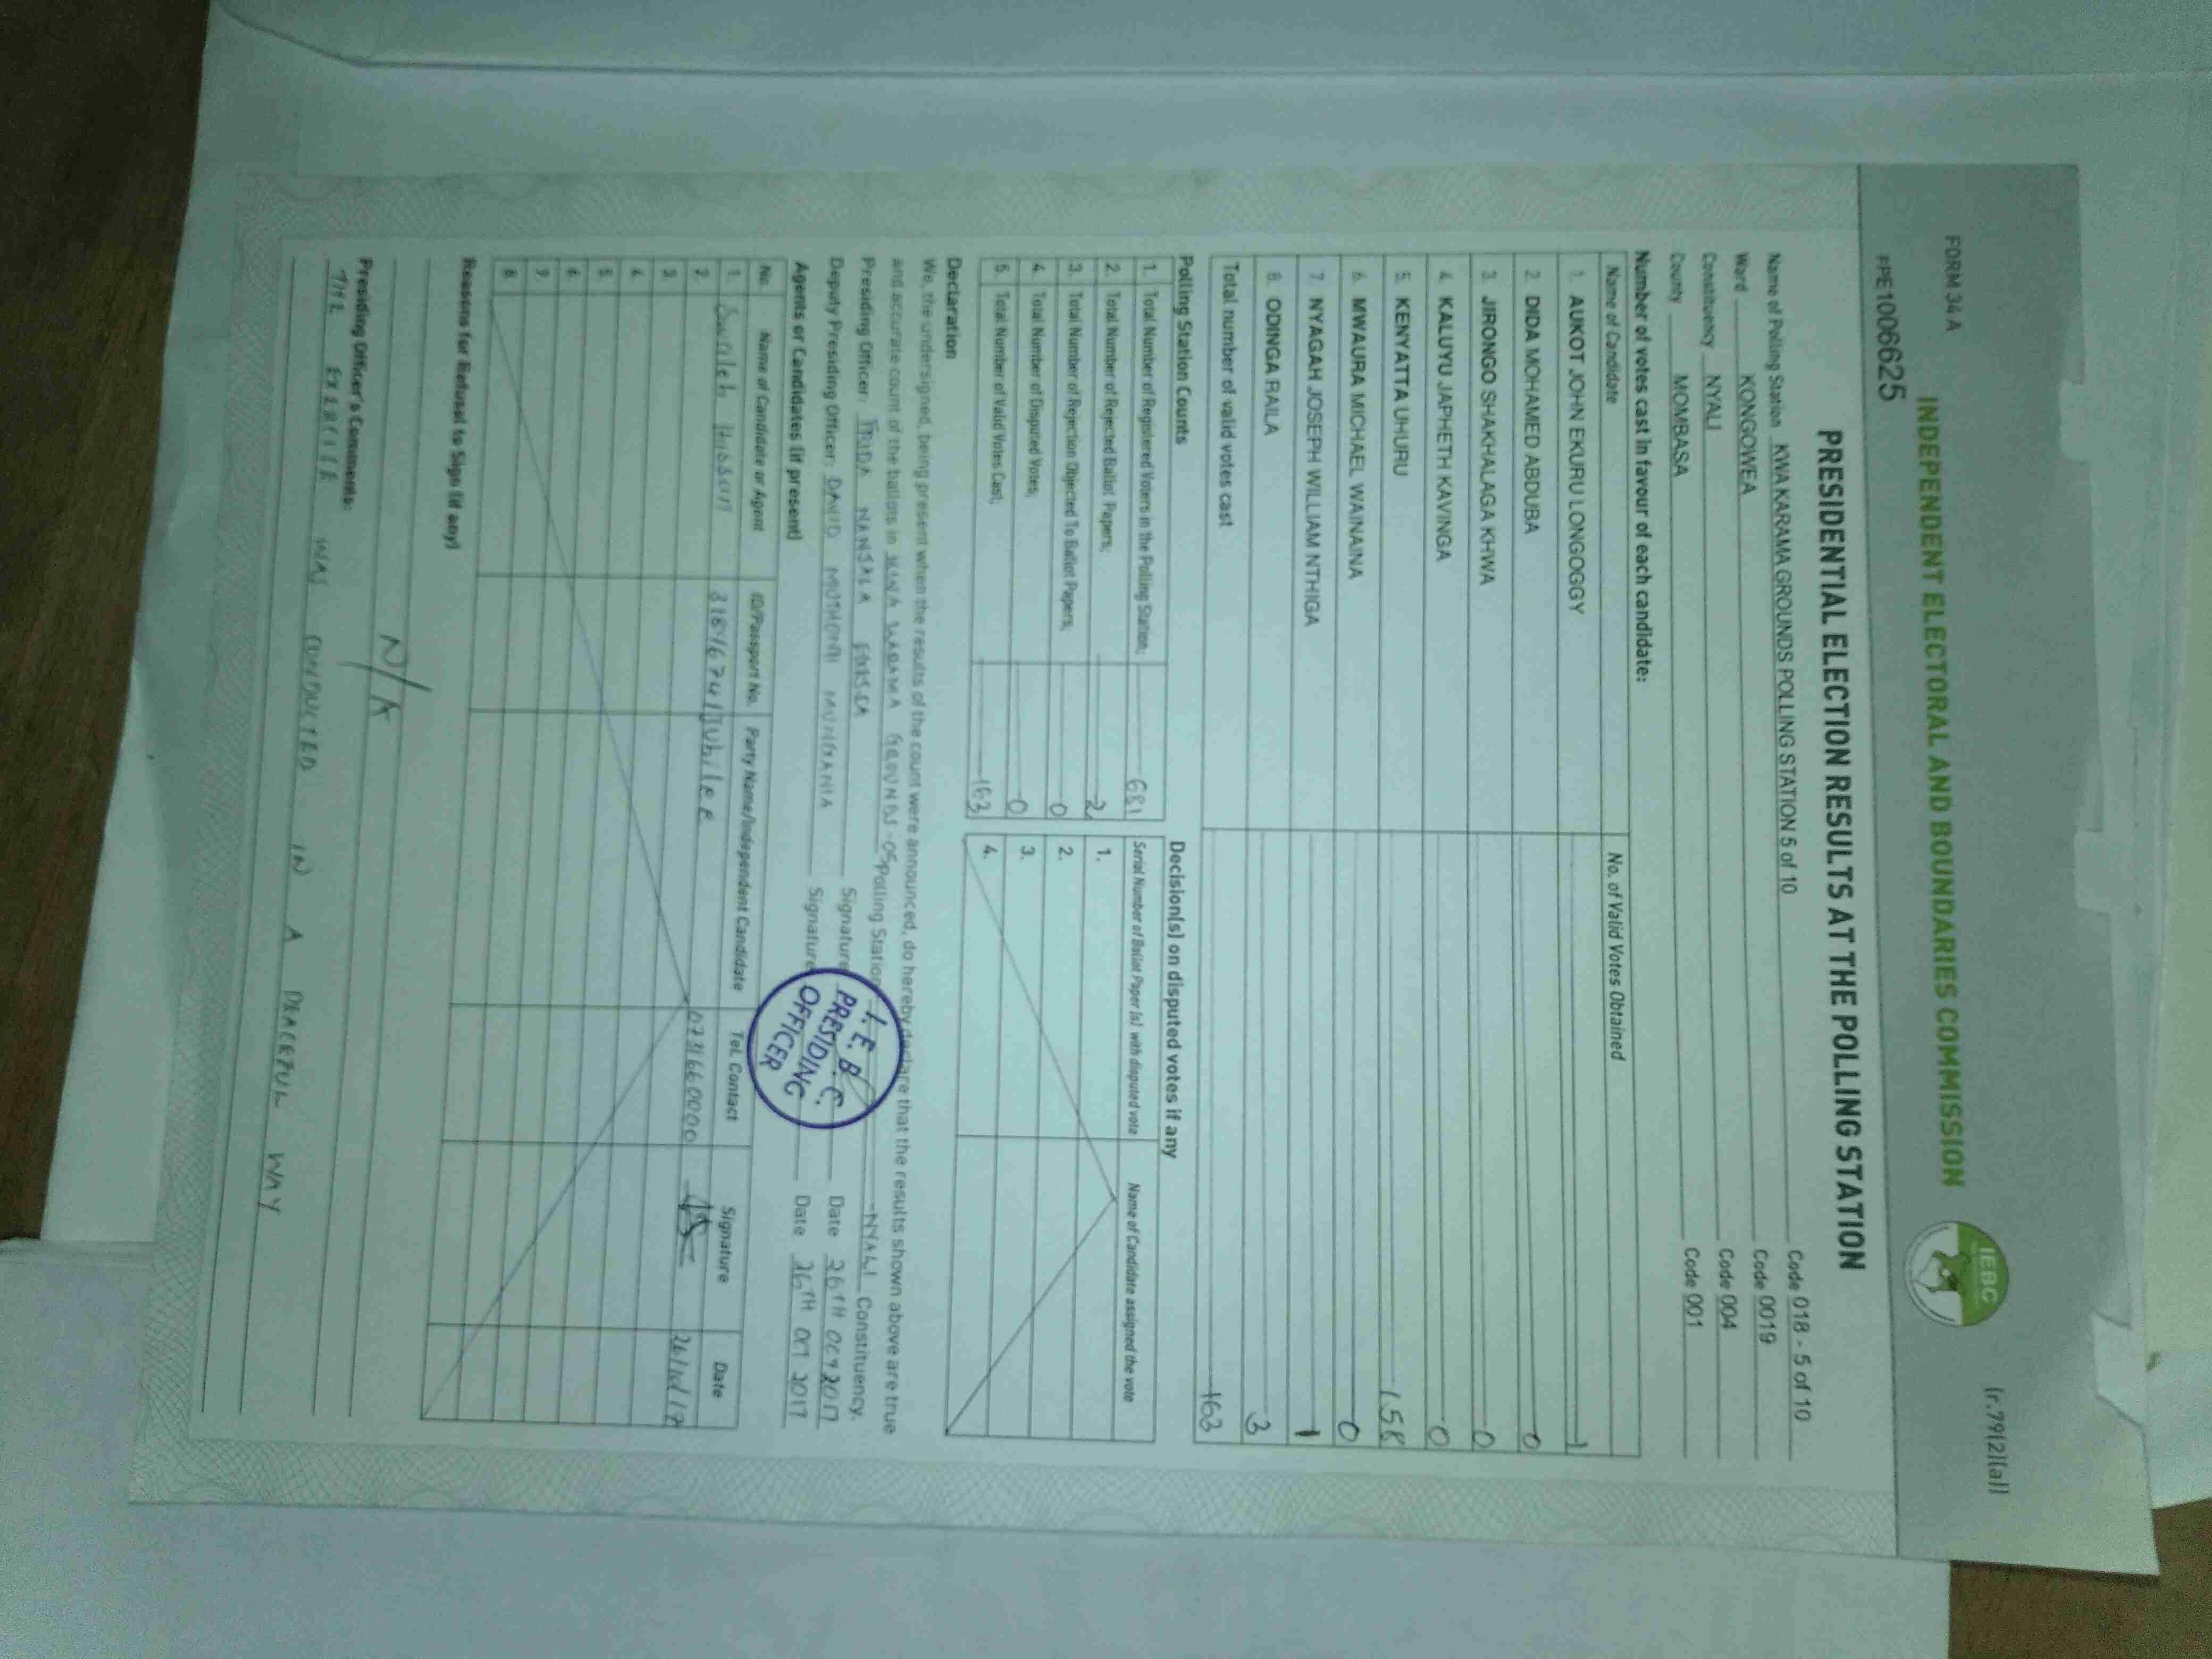 FORM 34 A
(r.79(2)(a))
INDEPENDENT ELECTORAL AND BOUNDARIES COMMISSION
IEBC
PPE1006625
PRESIDENTIAL ELECTION RESULTS AT THE POLLING STATION
Name of Polling Station KWA KARAMA GROUNDS POLLING STATION 5 of 10 Code 018 - 5 of 10
Ward KONGOWEA Code 0019
Constituency NYALI Code 004
County MOMBASA Code 001
Number of votes cast in favour of each candidate:
Name of Candidate No. of Valid Votes Obtained
1. AUKOT JOHN EKURU LONGOGGY 1
2. DIDA MOHAMED ABDUBA 0
3. JIRONGO SHAKHALAGA KHWA 0
4. KALUYU JAPHETH KAVINGA 0
5. KENYATTA UHURU 158
6. MWAURA MICHAEL WAINAINA 0
7. NYAGAH JOSEPH WILLIAM NTHIGA 1
8. ODINGA RAILA 3
Total number of valid votes cast 163
Polling Station Counts
1. Total Number of Registered Voters in the Polling Station; 681
2. Total Number of Rejected Ballot Papers; 2
3. Total Number of Rejection Objected To Ballot Papers; 0
4. Total Number of Disputed Votes; 0
5. Total Number of Valid Votes Cast; 163
Decision(s) on disputed votes if any
Serial Number of Ballot Paper (s) with disputed vote Name of Candidate assigned the vote
1.
2.
3.
4.
Declaration
We, the undersigned, being present when the results of the count were announced, do hereby declare that the results shown above are true
and accurate count of the ballots in KWA KARAMA GROUNDS -05 Polling Station -NYALI Constituency.
Presiding Officer: Signature Date 26TH OCT 2017
Deputy Presiding Officer: DAVID Signature Date 26TH OCT 2017
I.E.B.C.
PRESIDING
OFFICER
Agents or Candidates (if present)
No. Name of Candidate or Agent ID/Passport No. Party Name/Independent Candidate Tel. Contact Signature Date
1. Swaleh Hassan 31816741 Jubilee 0731660000 26/10/17
2.
3.
4.
5.
6.
7.
8.
Reasons for Refusal to Sign (if any)
N/A
Presiding Officer's Comments:
THE EXERCISE WAS CONDUCTED IN A PEACEFUL WAY